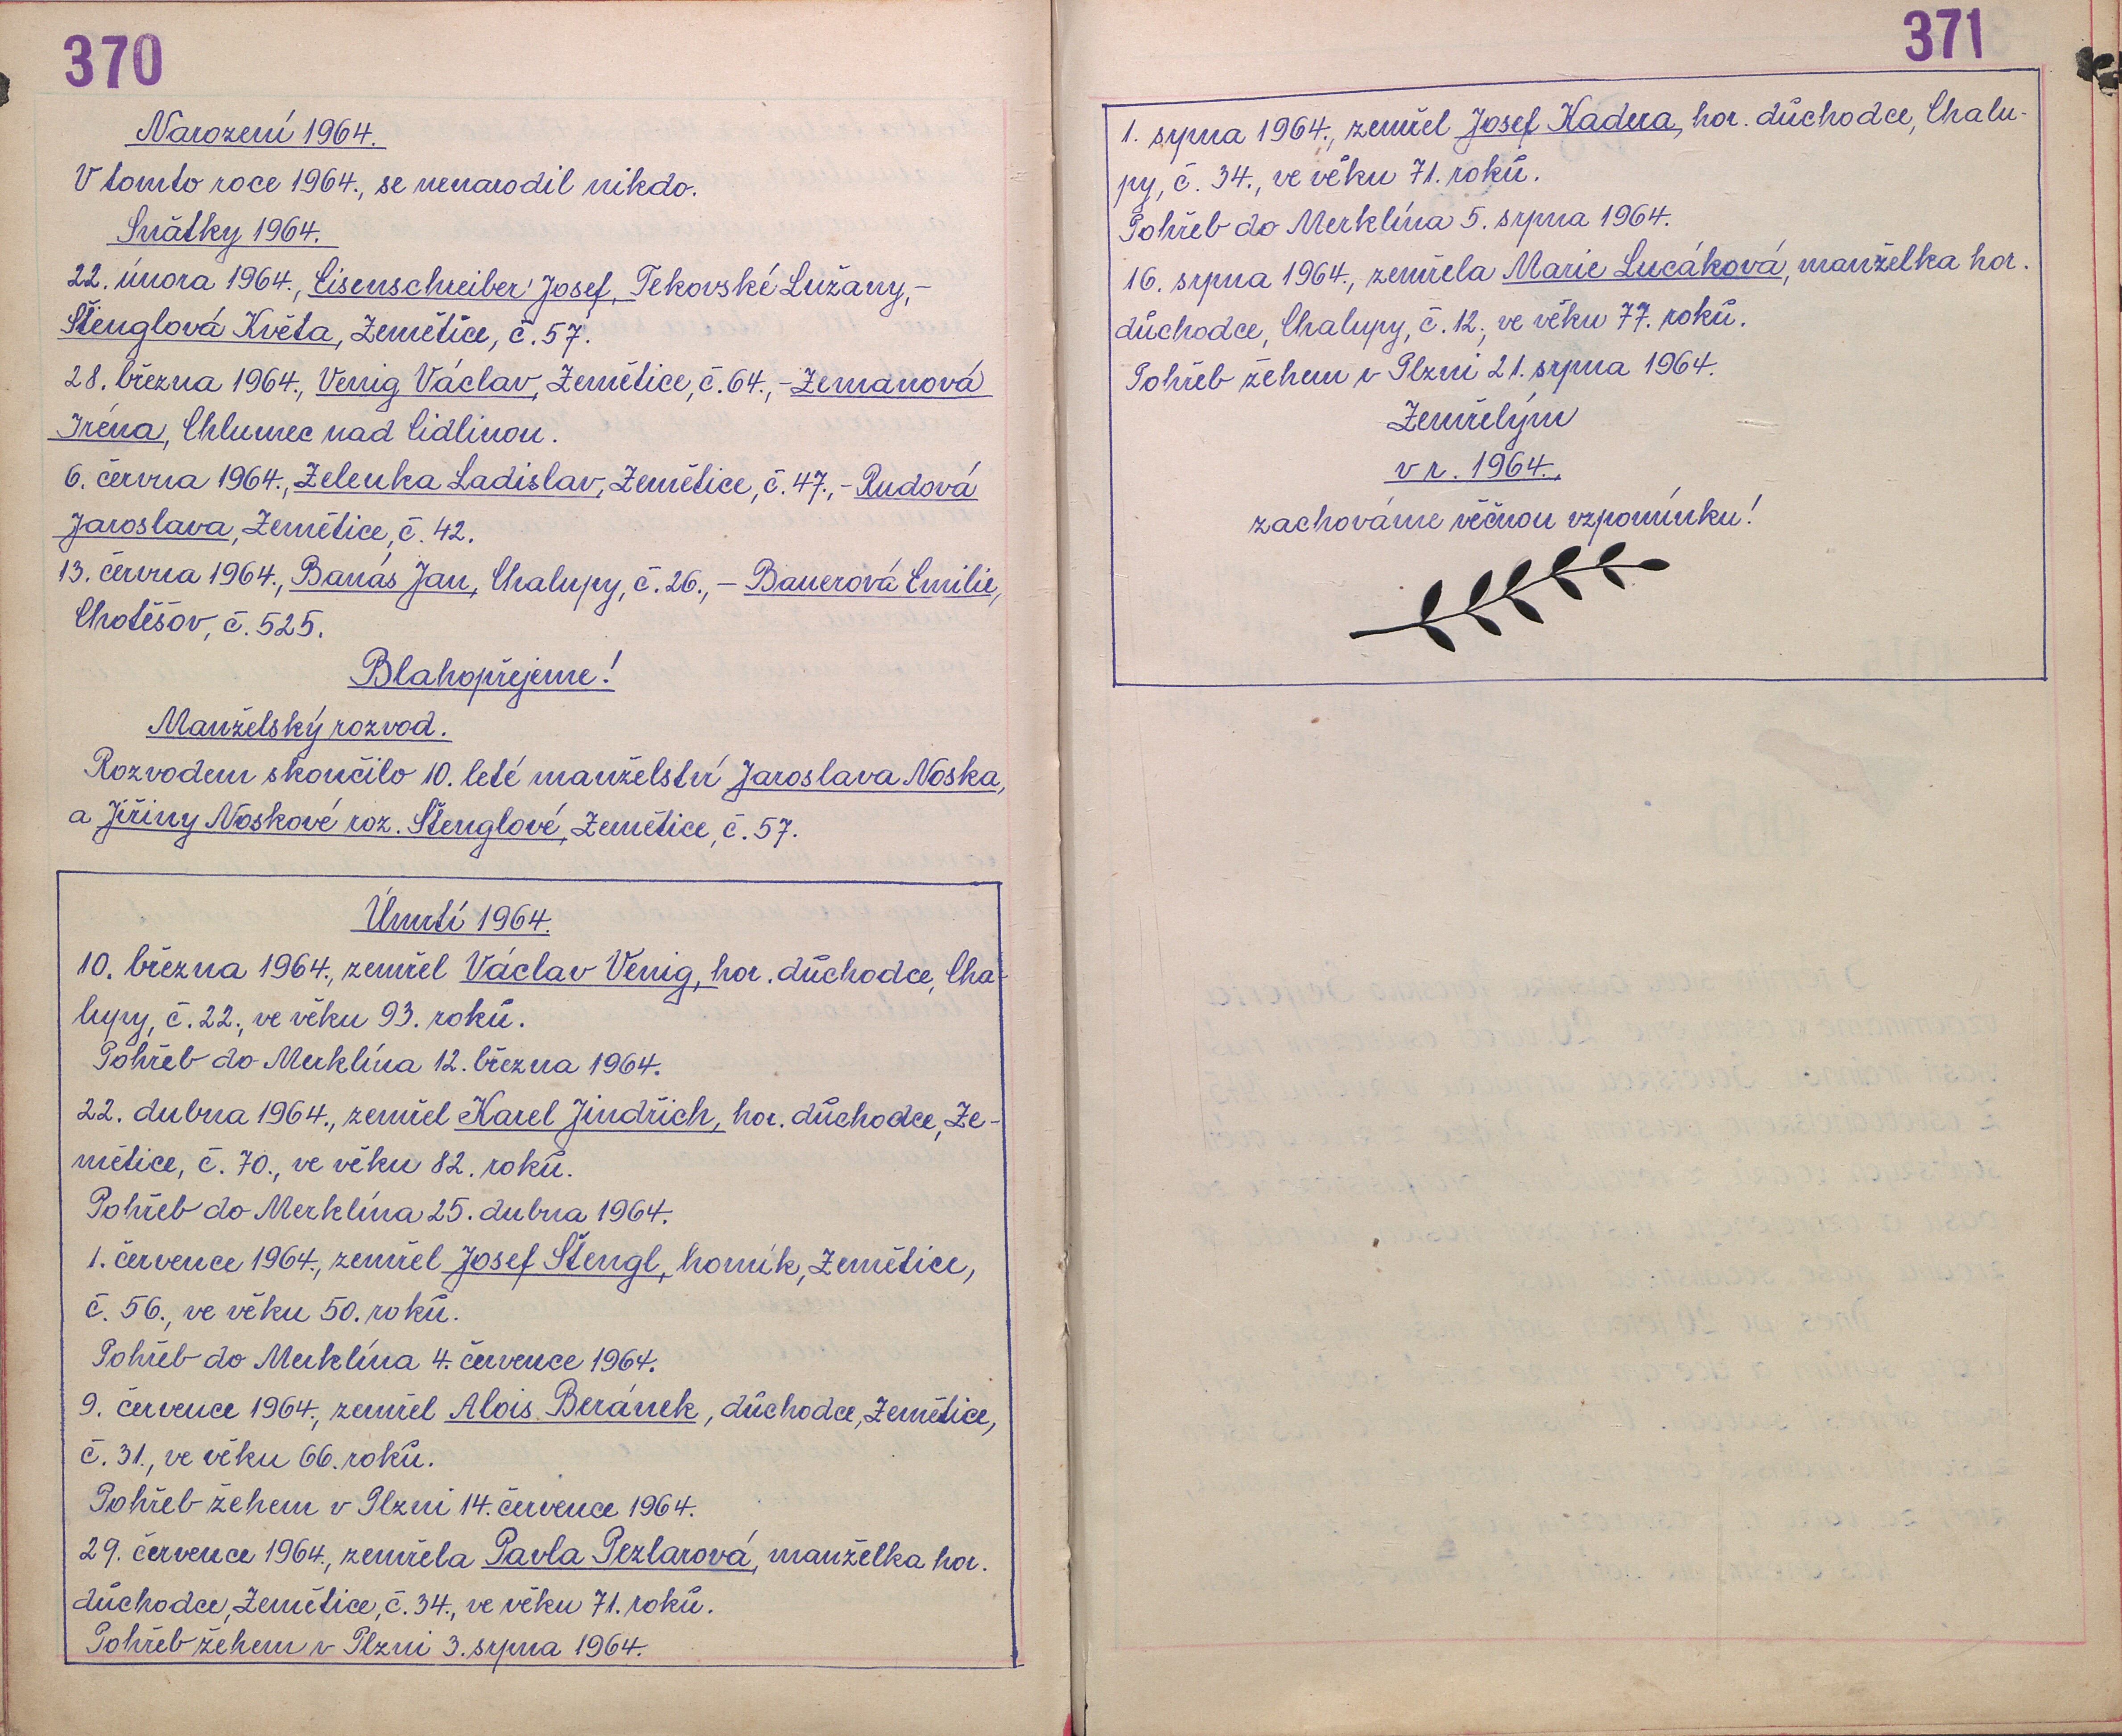 370
Narození 1964.
V tomto roce 1964., se nenarodil nikdo.
Sňatky 1964.
22. února 1964., Eisenschreiber Josef, Tekovské Lužany,-
Štenglová Květa, Zemětice, č. 57.
28. března 1964., Venig Václav, Zemětice, č. 64., - Zemanová
Iréna, Chlumec nad Cidlinou.
6. června 1964., Zelenka Ladislav, Zemětice, č. 47., - Rudová
Jaroslava, Zemětice, č. 42.
13. června 1964., Banás Jan, Chalupy, č. 26., - Bauerová Emilie,
Chotěšov, č. 525.
Blahopřejeme!
Manželský rozvod.
Rozvodem skončilo 10. leté manželství Jaroslava Noska,
a Jiřiny Noskové roz. Štenglové, Zemětice, č. 57.
Úmrtí 1964.
10. března 1964., zemřel Václav Venig, hor. důchodce, Cha-
lupy, č. 22., ve věku 93. roků.
Pohřeb do Merklína 12. března 1964.
22. dubna 1964., zemřel Karel Jindřich, hor. důchodce, Ze-
mětice, č. 70., ve věku 82. roků.
Pohřeb do Merklína 25. dubna 1964.
1. července 1964., zemřel Josef Štengl, horník, Zemětice,
č. 56., ve věku 50. roků.
Pohřeb do Merklína 4. července 1964.
9. července 1964., zemřel Alois Beránek, důchodce, Zemětice,
č. 31., ve věku 66. roků.
Pohřeb žehem v Plzni 14. července 1964.
29. července 1964., zemřela Pavla Pezlarová, manželka hor.
důchodce, Zemětice, č. 34., ve věku 71. roků.
Pohřeb žehem v Plzni 3. srpna 1964.
371
1. srpna 1964., zemřel Josef Kadera, hor. důchodce, Chalu-
py, č. 34., ve věku 71. roků.
Pohřeb do Merklína 5. srpna 1964.
16. srpna 1964., zemřela Marie Lucáková, manželka hor.
důchodce, Chalupy, č. 12., ve věku 77. roků.
Pohřeb žehem v Plzni 21. srpna 1964.
Zemřelým
v r. 1964.,
zachováme věčnou vzpomínku!